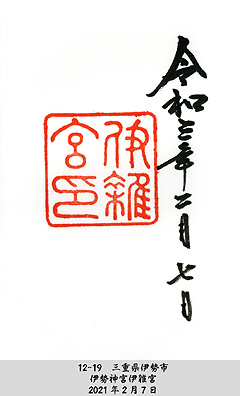 令和三年二月七日
伊雜
宮印
12-19 三重県伊勢市
伊勢神宮伊雑宮
2021年2月7日